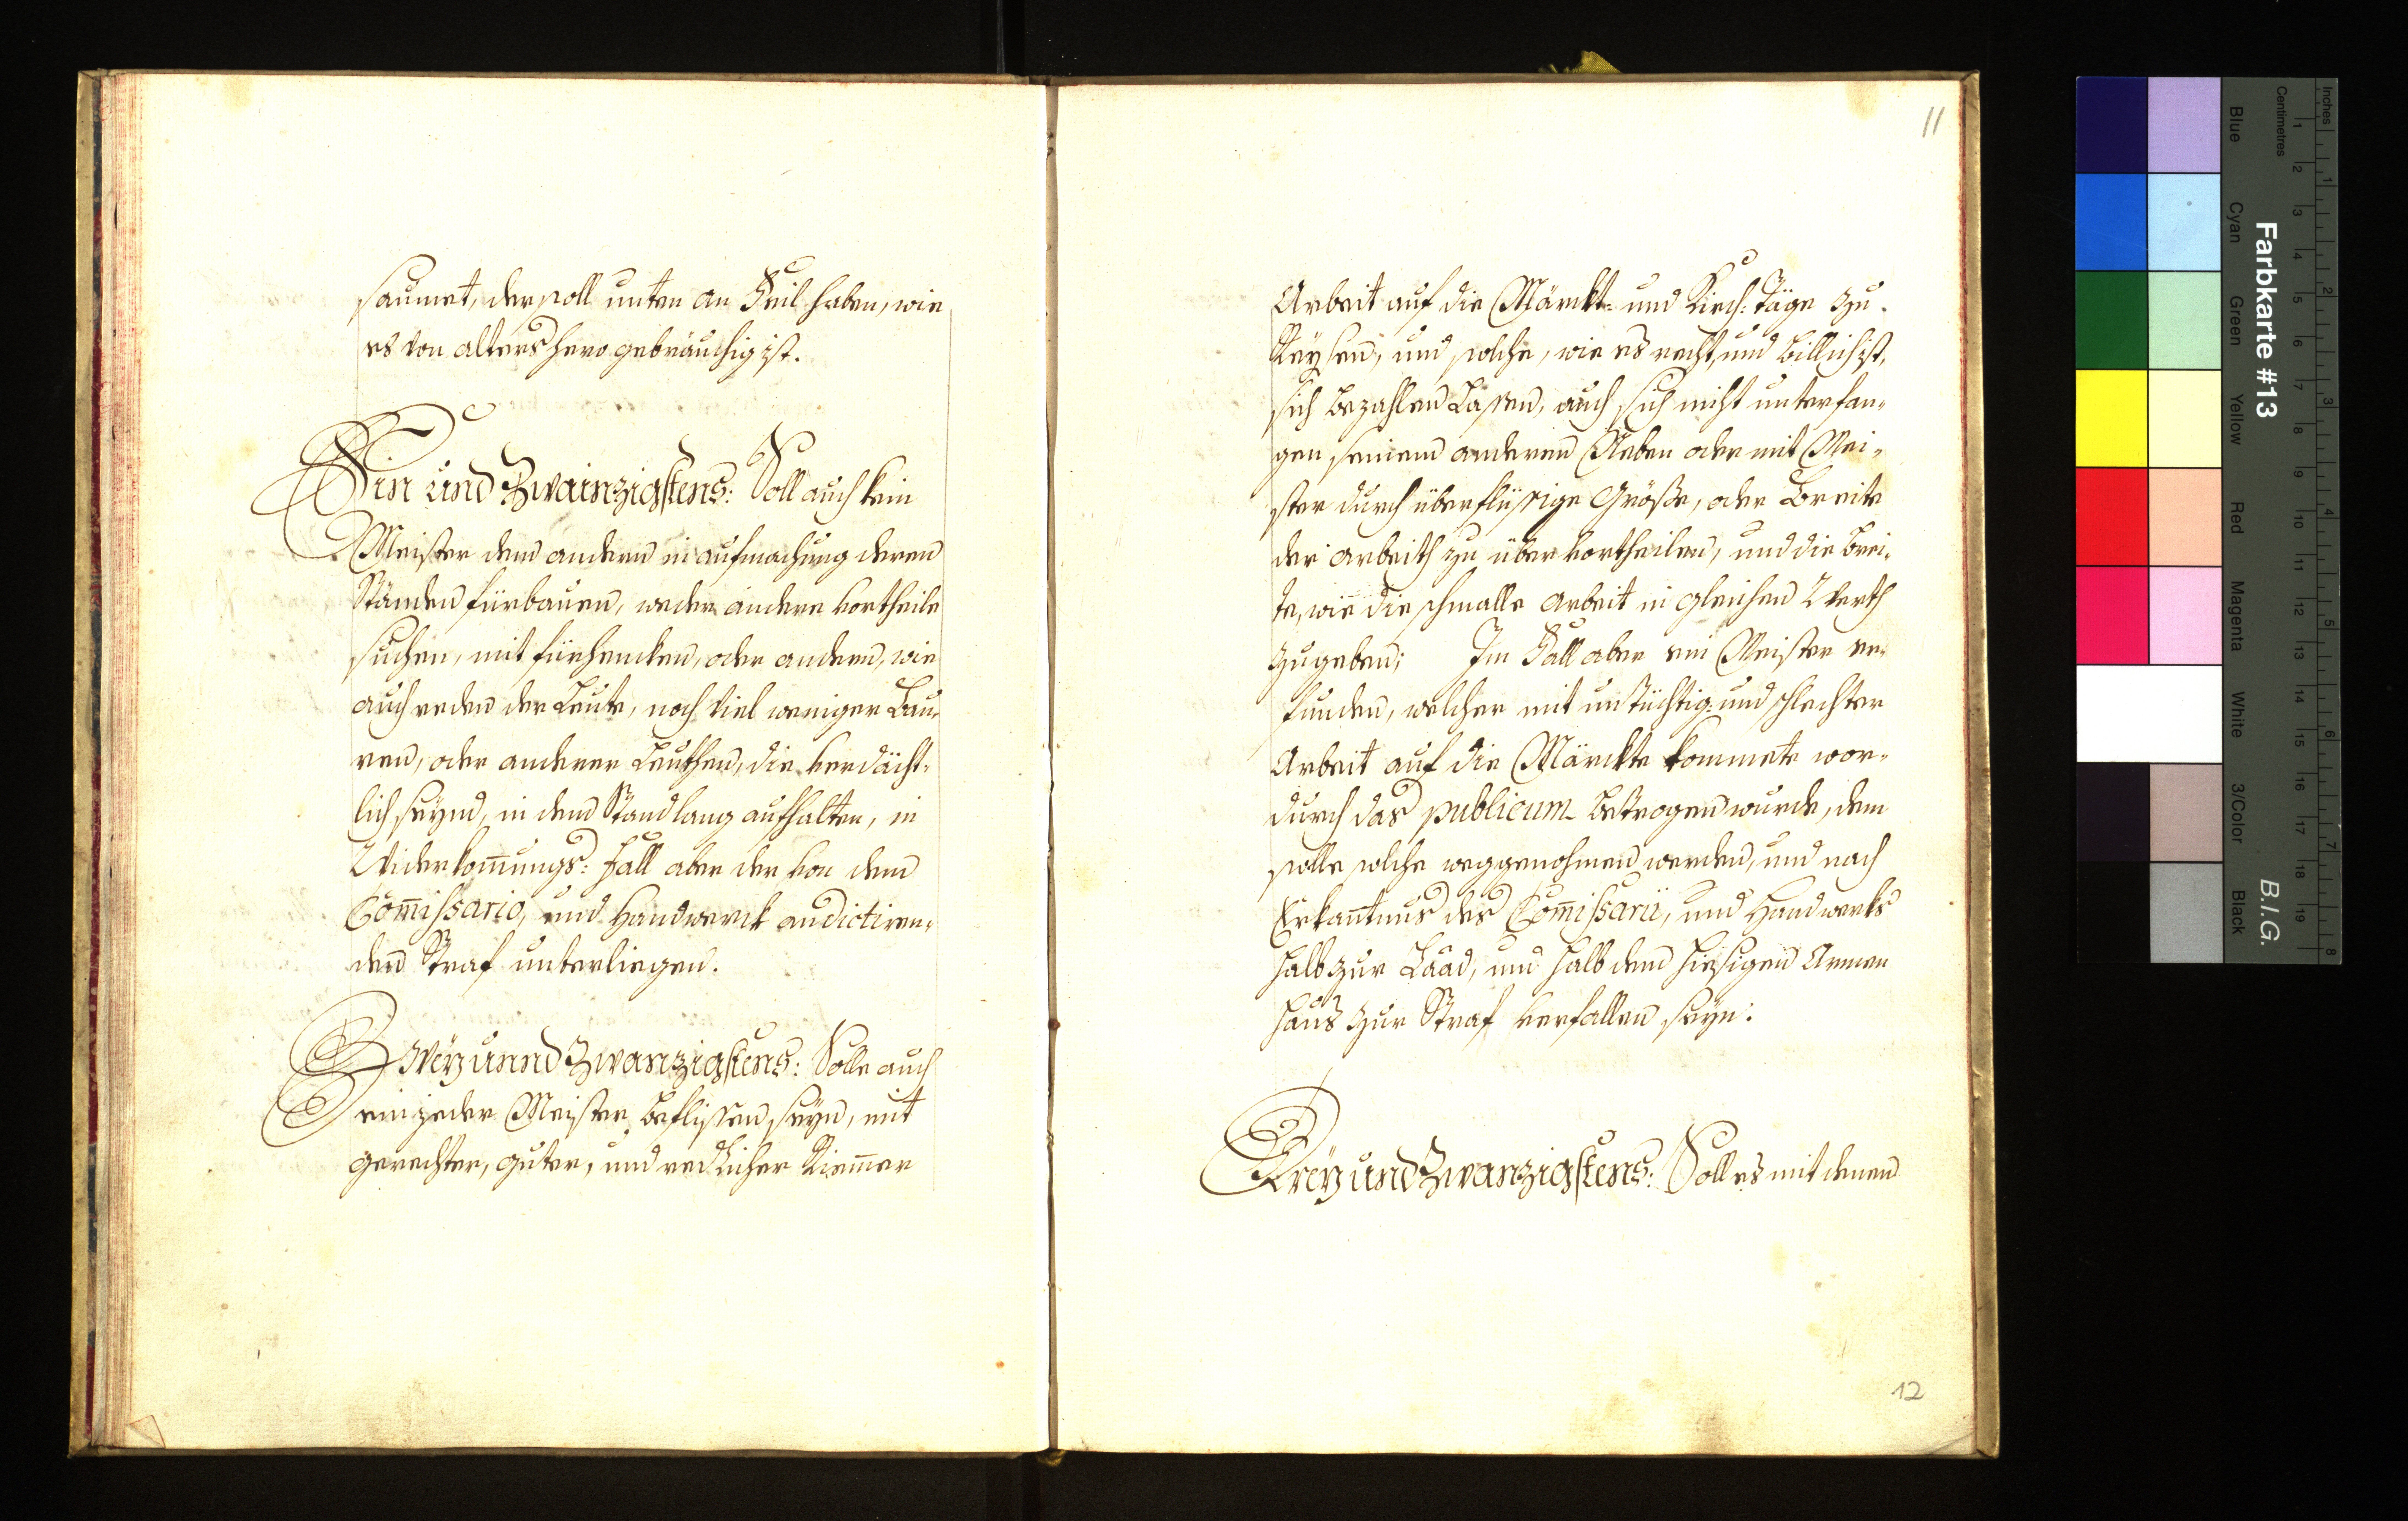 saumet, der soll unten an Feil haben, wie
es von alters hero gebräuchig ist.
Ein und Zwainzigstens: Soll auch kein
Meister dem andern in aufmachung deren
Ständen fürbauen, weder andere vortheile
suchen, mit fürhencken, oder andern, wie
auch reden der Leute, noch viel weniger Bau-
ren, oder anderer Leuthen, die verdächt-
lich seynd, in dem Stand lang aufhalten, in
Widerkom̅ungs: fall aber der von dem
Com̅issario, und Handwerck andictiren-
den Straf unterliegen.
Zweÿ unnd Zwanzigstens: Solle auch
ein jeder Meister beflissen seyn, mit
gerechter, guter, und redlicher Riem̅er
11
Arbeit auf die Märckt- und Kirch: Täge zu
Reysen, und solche, wie es recht, und billich ist,
sich bezahlen Lassen, auch sich nicht unterfan-
gen seinem anderen Neben oder mit Mei-
ster durch überflüssige Größe, oder Breite
der arbeith zu übervortheilen, und die brei-
te, wie die schmalle arbeit in gleichen Werth
zugeben; Im Fall aber ein Meister er-
funden, welcher mit untüchtig- und schlechter
Arbeit auf die Märckte kommete wor-
durch das publicum betrogen wurde, dem
solle solche weggenohmen werden, und nach
Erkan̅tnus des Com̅issarii, und Handwerks
halb zur Laad, und halb dem hiesigen Armen
haus zur Straf verfallen seyn.
Dreÿ und Zwanzigstens: Soll es mit denen
12
Farbkarte #13
B.I.G.
Inches
Centimetres
Blue
Cyan
Green
Yellow
Red
Magenta
White
3/Color
Black